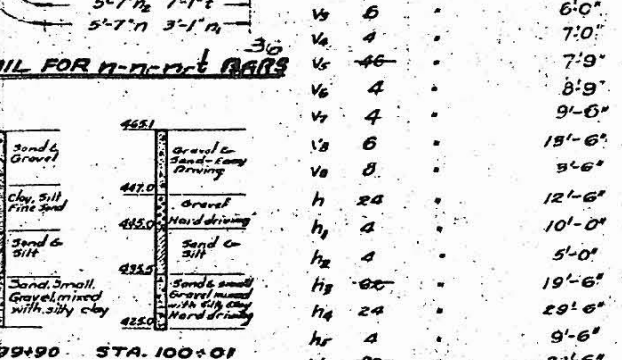 5'-7"n₂ 7'-1"t
5'-7"n 3'-1"n₁
IL FOR n-n₁-n₂-t BARS
Sand & Gravel
Clay, Silt
Fine Sand
Sand &
Silt
Sand, Small
Gravel, mixed
with silty clay
99+90
465.1
Gravel &
Sand-Easy
Driving
447.0
Gravel
Hard driving
445.0
Sand &
Silt
435.5
Sand & small
Gravel mixed
with Silty Clay
Hard driving
425.0
STA. 100+01
V₃ 6 " 6'-0"
V₄ 4 " 7'-0"
36
V₅ 46 " 7'-9"
V₆ 4 " 8'-9"
V₇ 4 " 9'-6"
V₈ 6 " 13'-6"
8 " 3'-6"
h 24 " 12'-6"
h₁ 4 " 10'-0"
h₂ 4 " 5'-0"
h₃ " 19'-6"
h₄ 24 " 29'-6"
h₅ 4 " 9'-6"